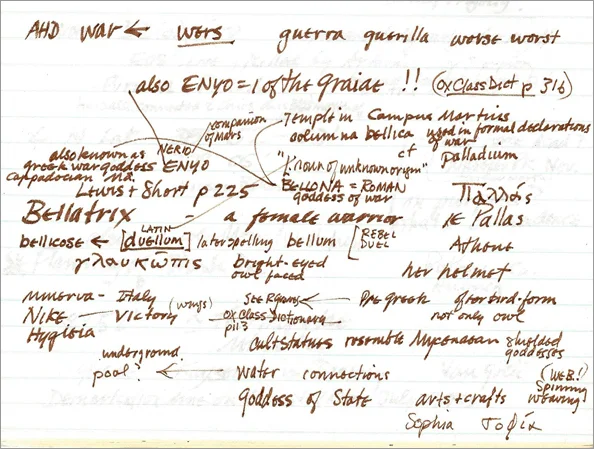 AHD war ← wers guerra guerilla worse worst
also ENYO = 1 of the Graiae !! (Ox Class Dict p 316)
companion of Mars
NERIO
Temple in Campus Martius
columna bellica used in formal declarations of war
cf Palladium
also known as
greek war goddess ENYO
Cappadocian Ma.
"Known of unknown origin"
Lewis + Short p 225
BELLONA = ROMAN
goddess of war
Παλλάς
Bellatrix - a female warrior ie Pallas
LATIN
bellicose ← [duellum] later spelling bellum [REBEL
DUEL
Athene
γλαυκῶπις bright-eyed her helmet
owl faced
Minerva - Italy (wings) see Pre greek often bird-form
Nike — Victory Ox Class Dictionary not only owl
p113
Hygieia
cult statues resemble Mycenaean shielded
goddesses
underground
pool? ← water connections (WEB!)
Spinning
Goddess of State arts + crafts weaving
Sophia